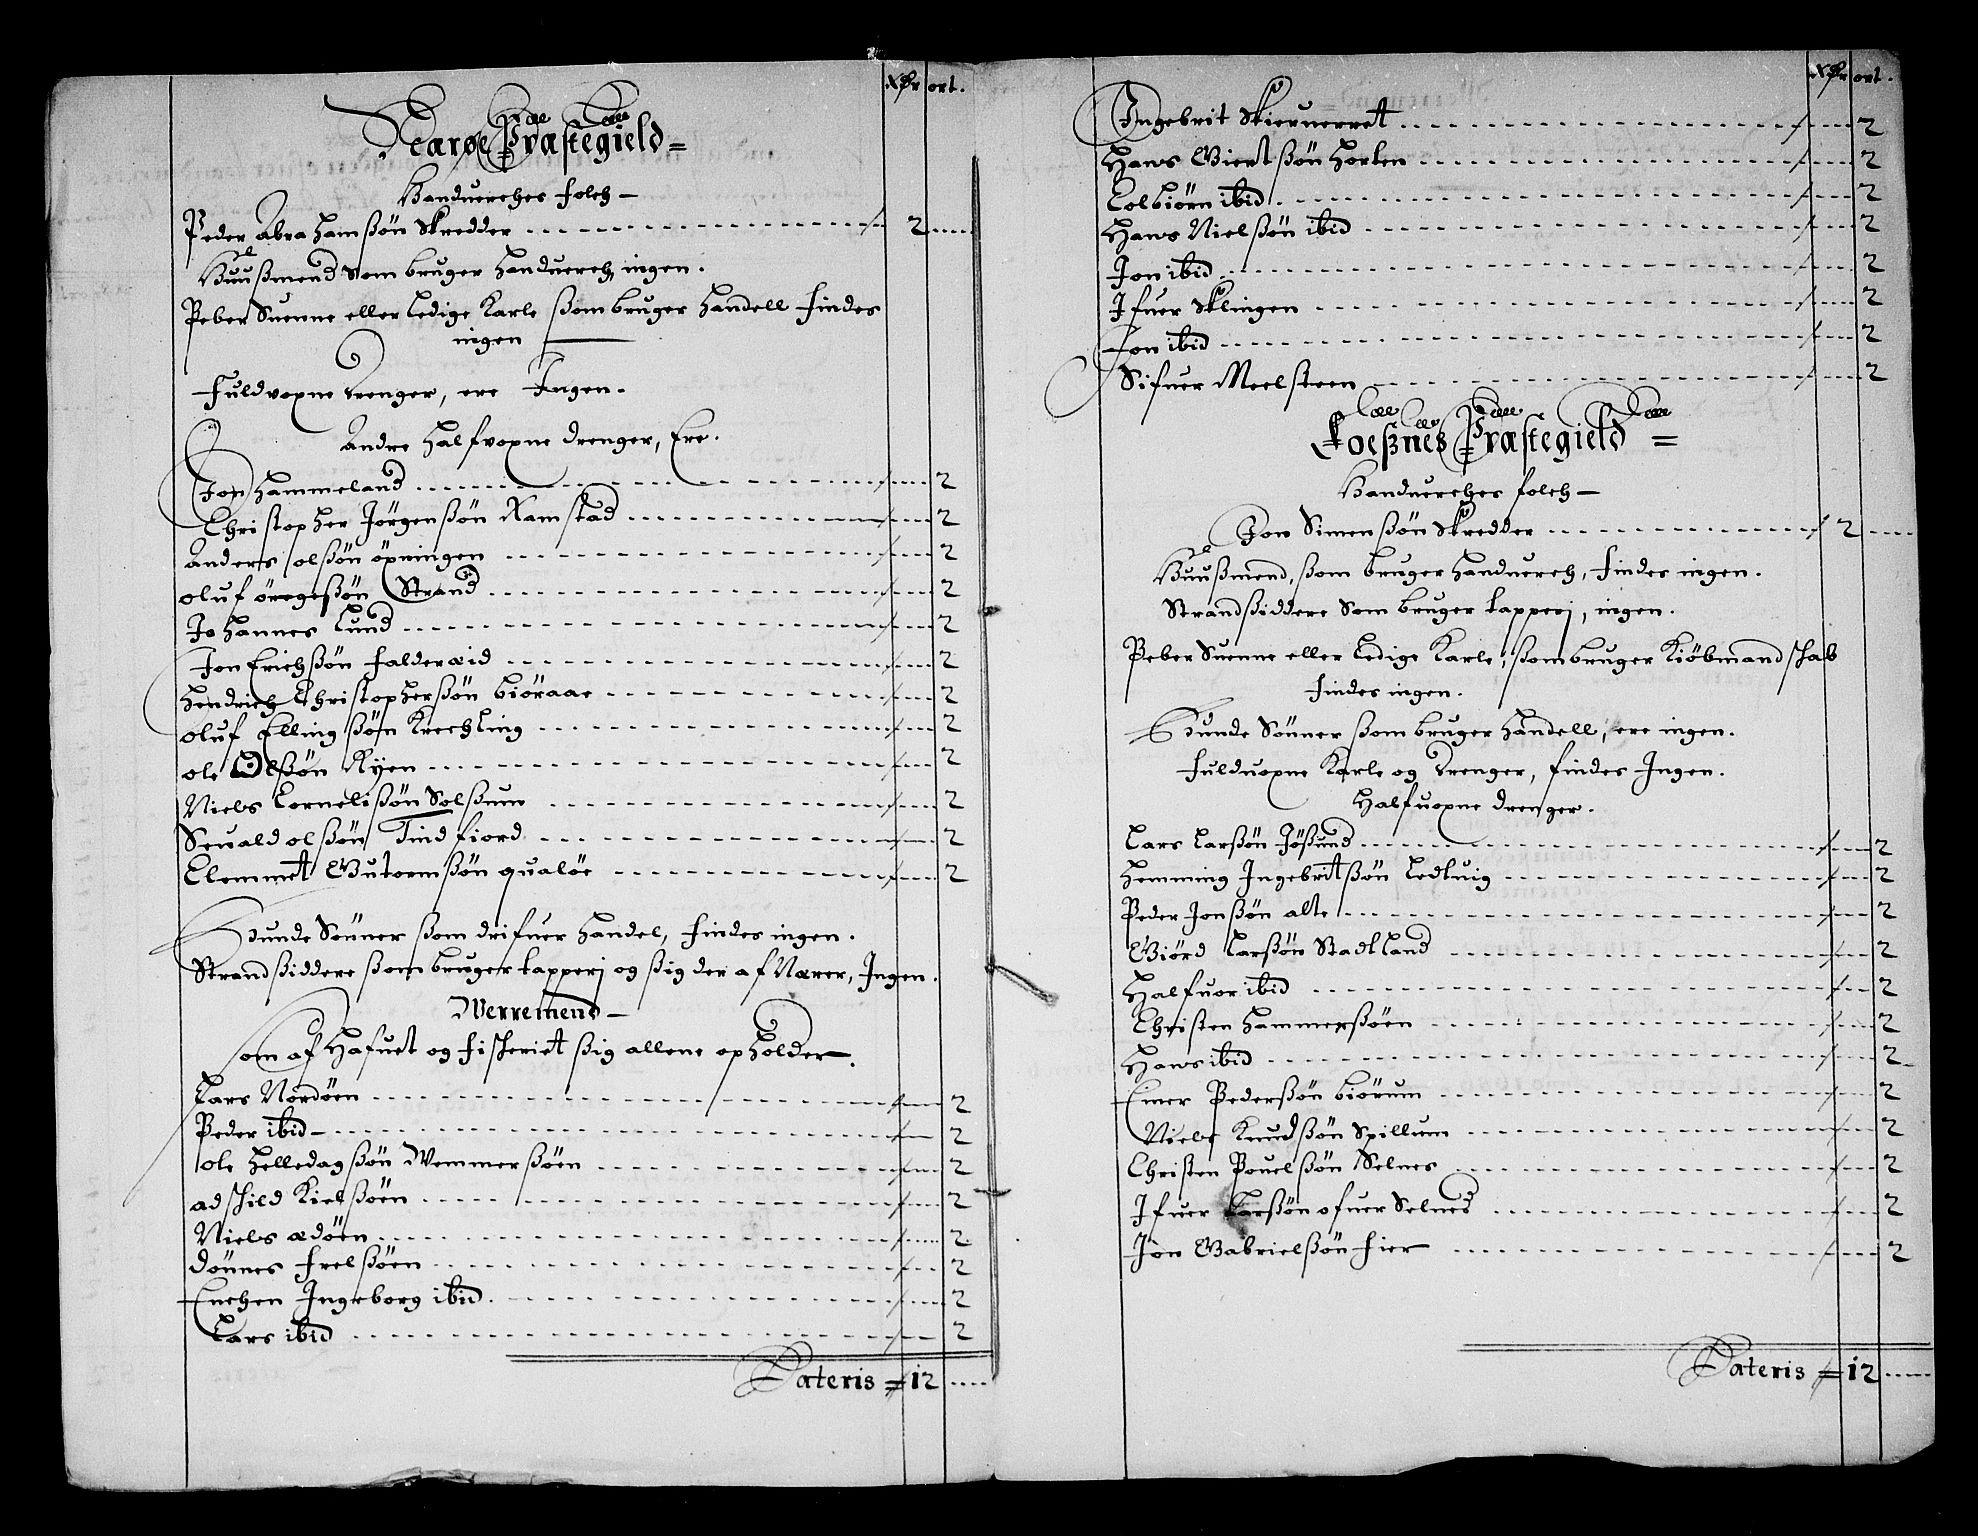 Rdr ort.
Næröe Præstegield =
Handuerches folch —
Peder Abrahamßøn Skredder 2
Huußmend som bruger handuerch, ingen.
Peber Suenne eller Ledige Karle ßom bruger handell findes
ingen
Fuldvoxne Drenger, ere Ingen.
Andre halfvoxne drenger, Ere.
Jon Hammeland 2
Christopher Jörgenßøn Ramstad 2
Anders olßøn öpningen 2
oluf Strand 2
Johannes Lund 2
Jon Erichßøn falderæid 2
Hendrich Christopherßøn biöraae 2
oluf Ellingßøn Krechling 2
ole Olßøn Ryen 2
Niels Cornelißøn Solßum 2
Seuald olßøn Tindfiord 2
Clemmet Gutormßøn qualöe 2
Bunde Sönner ßom drifuer handel, findes ingen.
Strandßiddere ßom bruger tapperj og ßig der af Nærer, Ingen.
Werremend —
som af Hafuet og fischeriet ßig allene opholder.
Lars Nordöen 2
Peder ibid — 2
ole helledagßøn Wemmerßöen 2
adschild Kielßöen 2
Niels ædöen 2
Dönnes frelßöen 2
Enchen Ingeborg ibid. 2
Lars ibid 2
Lateris = 12
Rdr ort.
Ingebrit Skieruerret 2
Hans Giertßøn horten 2
Colbiörn ibid 2
Hans Nielßøn ibid 2
Jon ibid 2
Ifuer Sklingen 2
Jon ibid 2
Sifuer Meelsteen 2
Foeßnes Præstegield =
Handuerches folch —
Jon Simenßøn Skredder 2
Huußmend, ßom bruger handuerch, findes ingen.
Strandßiddere Som bruger tapperj, ingen.
Peber Suenne eller Ledige Karle, ßom bruger Kiöbmandschab
findes ingen.
Bunde Sönner ßom bruger handell, ere ingen.
fulduoxne Karle og Drenger, findes Ingen.
Halfuoxne drenger.
Lars Larßøn Jößund 2
Hemming Ingebritßøn Ledtuig 2
Peder Jonßøn alte 2
Giörd Larßøn Stadtland 2
Halfuor ibid 2
Christen hammerßöen 2
Hans ibid 2
Einer Pederßøn biörum 2
Niels Knudßøn Spillum 2
Christen Pouelßøn Selnes 2
Ifuer Larßøn ofuer Selnes 2
Jon Gabrielßøn fier 2
Lateris = 12